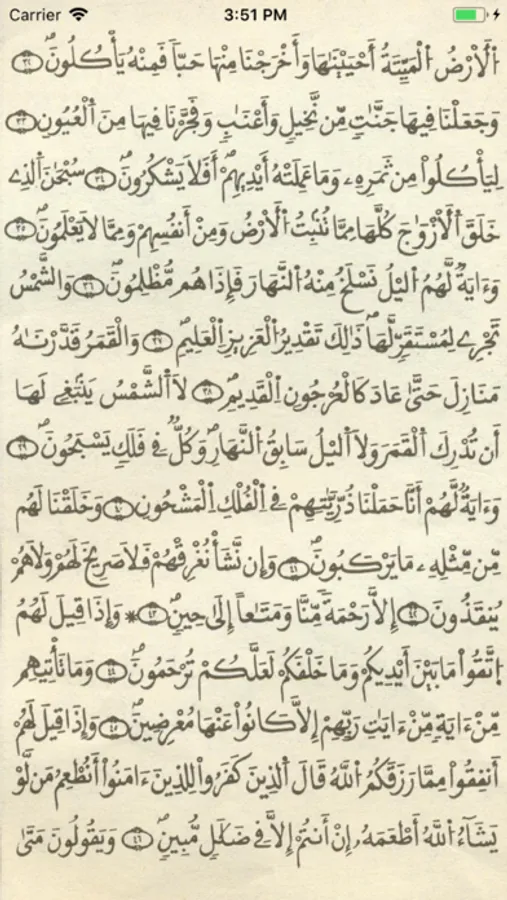 Carrier 3:51 PM
اُ۬لَارْضُ اُ۬لْمَيِّتَةُ أَحْيَيْنَٰهَا وَأَخْرَجْنَا مِنْهَا حَبّاٗ فَمِنْهُ يَأْكُلُونَۖ ٣٢
وَجَعَلْنَا فِيهَا جَنَّٰتٖ مِّن نَّخِيلٖ وَأَعْنَٰبٖ وَفَجَّرْنَا فِيهَا مِنَ اَ۬لْعُيُونِ ٣٣
لِيَأْكُلُواْ مِن ثَمَرِهِۦ وَمَا عَمِلَتْهُ أَيْدِيهِمْۖ أَفَلَا يَشْكُرُونَۖ ٣٤ سُبْحَٰنَ اَ۬لذِے
خَلَقَ اَ۬لَازْوَٰجَ كُلَّهَا مِمَّا تُنۢبِتُ اُ۬لَارْضُ وَمِنْ أَنفُسِهِمْ وَمِمَّا لَا يَعْلَمُونَۖ ٣٥
وَءَايَةٞ لَّهُمُ اُ۬ليْلُ نَسْلَخُ مِنْهُ اُ۬لنَّهَارَ فَإِذَا هُم مُّظْلِمُونَۖ ٣٦ وَالشَّمْسُ
تَجْرِے لِمُسْتَقَرّٖ لَّهَاۖ ذَٰلِكَ تَقْدِيرُ اُ۬لْعَزِيزِ اِ۬لْعَلِيمِۖ ٣٧ وَالْقَمَرُ قَدَّرْنَٰهُ
مَنَازِلَ حَتَّىٰ عَادَ كَالْعُرْجُونِ اِ۬لْقَدِيمِۖ ٣٨ لَا اَ۬لشَّمْسُ يَنۢبَغِے لَهَا
أَن تُدْرِكَ اَ۬لْقَمَرَ وَلَا اَ۬ليْلُ سَابِقُ اُ۬لنَّهَارِۖ وَكُلّٞ فِے فَلَكٖ يَسْبَحُونَۖ ٣٩
وَءَايَةٞ لَّهُمْ أَنَّا حَمَلْنَا ذُرِّيَّٰتِهِمْ فِے اِ۬لْفُلْكِ اِ۬لْمَشْحُونِ ٤٠ وَخَلَقْنَا لَهُم
مِّن مِّثْلِهِۦ مَا يَرْكَبُونَۖ ٤١ وَإِن نَّشَأْ نُغْرِقْهُمْ فَلَا صَرِيخَ لَهُمْ وَلَا هُمْ
يُنقَذُونَ ٤٢ إِلَّا رَحْمَةٗ مِّنَّا وَمَتَٰعاً إِلَىٰ حِينٖۖ ٤٣ * وَإِذَا قِيلَ لَهُمُ
اُ۪تَّقُواْ مَا بَيْنَ أَيْدِيكُمْ وَمَا خَلْفَكُمْ لَعَلَّكُمْ تُرْحَمُونَۖ ٤٤ وَمَا تَأْتِيهِم
مِّنْ ءَايَةٖ مِّنْ ءَايَٰتِ رَبِّهِمْ إِلَّا كَانُواْ عَنْهَا مُعْرِضِينَۖ ٤٥ وَإِذَا قِيلَ لَهُمْ
أَنفِقُواْ مِمَّا رَزَقَكُمُ اُ۬للَّهُ قَالَ اَ۬لذِينَ كَفَرُواْ لِلذِينَ ءَامَنُواْ أَنُطْعِمُ مَن لَّوْ
يَشَآءُ اُ۬للَّهُ أَطْعَمَهُۥ إِنْ أَنتُمْ إِلَّا فِے ضَلَٰلٖ مُّبِينٖۖ ٤٦ وَيَقُولُونَ مَتَىٰ